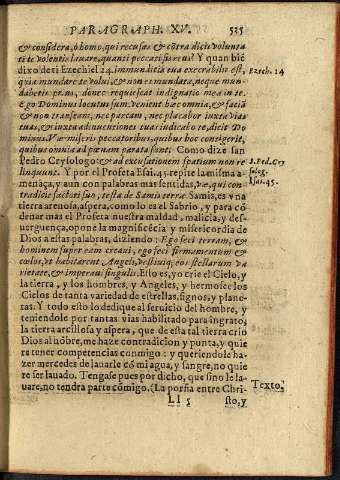 PARAGRAPH. XV. 535
& considera, ô homo, qui recusas & côtra dicis volunta
ti te volentis lauare, quanti peccati sis reus? Y quan bié
dixo desi Ezechiel 24. immunditia tua execrabilis est, Ezech. 24
quia mundare te volui, & non es mundata, neque mun-
daberis prius, donec requiescat indignatio mea in te.
ego Dominus locutus sum: venient hæc omnia, & faciã
& non transeam, nec parcam, nec placabor iuxta vias
tuas, & iuxta adinuentiones tuas iudicabo te, dicit Do
minus. Væ miseris peccatoribus, quibus hoc contigerit,
quibus omnia ad pœnam parata sunt. Como dize san
Pedro Crysologo & ad excusationem spatium non re S. Ped. Cry
linquunt. Y por el Profeta Esai. 45. repite la misma a- solog.
menaça, y aun con palabras mas sentidas, væ, qui con- Isai. 45.
tradicit factori suo, testa de Samis terræ. Samis, es vna
tierra arenosa, aspera, como lo es el Sabrio, y para cõ
denar mas el Profeta nuestra maldad, malicia, y des-
uerguença, opone la magnificẽcia y misericordia de
Dios a estas palabras, diziendo: Ego feci terram, &
hominem super eam creaui, ego feci firmamentum &
cœlos, vt habitarent Angeli, vestiuique eos stellarum va
rietate, & imperaui singulis. Esto es, yo crie el Cielo, y
la tierra, y los hombres, y Angeles, y hermosee los
Cielos de tanta variedad de estrellas, signos, y plane-
tas. Y todo esto lo dedique al seruicio del hombre, y
teniendole por tantas vias habilitado para ingrato,
la tierra arcillosa y aspera, que de esta tal tierra crio
Dios al hõbre, me haze contradicion y punta, y quie
res tener competencias conmigo: y queriendole ha-
zer mercedes de lauarle cõ mi agua, y sangre, no quie
re ser lauado. Tengase pues por dicho, que sino le la-
uare, no tendra parte cõmigo. (La porfia entre Chri- Texto.
Ll 5 sto, y